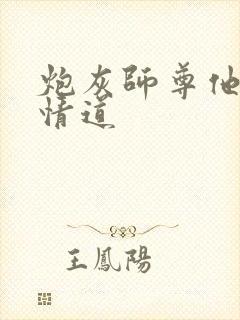 炮灰師尊他
情道
王鳳陽